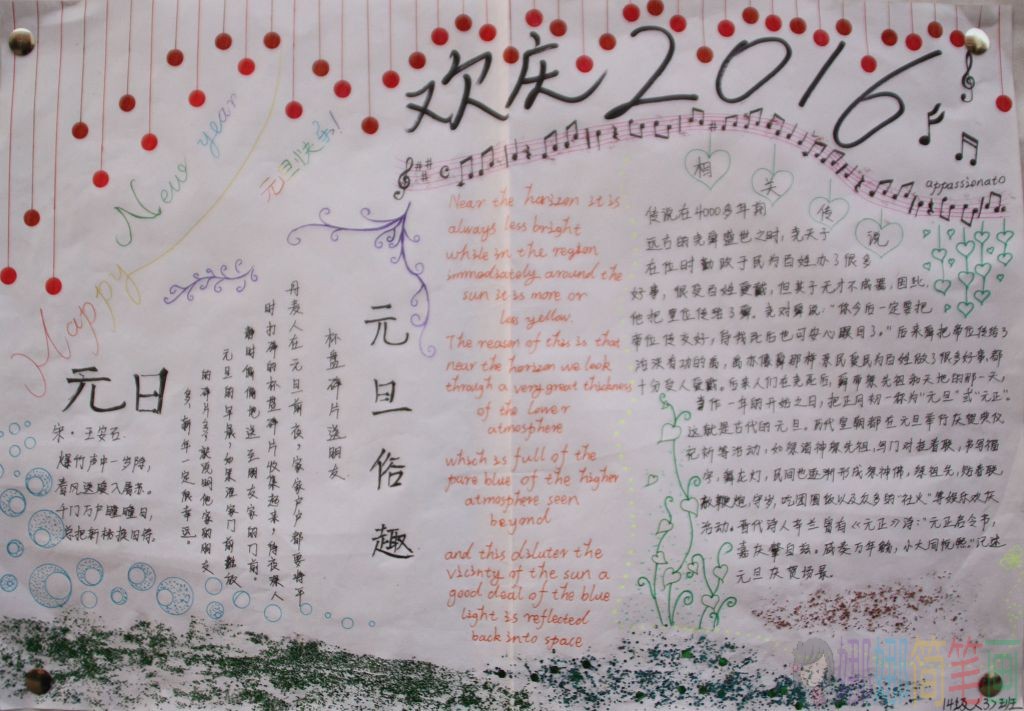 欢庆2016
Happy New year
元旦快乐!
appassionato
元日
宋·王安石
爆竹声中一岁除,
春风送暖入屠苏。
千门万户曈曈日,
总把新桃换旧符。
元旦俗趣
杯盘碎片送朋友
丹麦人在元旦前夜,家家户户都要将平
时打碎的杯盘碎片收集起来,待夜深人
静时偷偷地送至朋友家的门前。
元旦的早晨,如果谁家门前堆放
的碎片越多,就说明他家的朋友
多,新年一定很幸运。
Near the horizon it is
always less bright
while in the region
immediately around the
sun it is more or
less yellow.
The reason of this is that
near the horizon we look
through a very great thickness
of the lower
atmosphere
which is full of the
pure blue of the higher
atmosphere seen
beyond
and this diluter the
vicinty of the sun a
good deal of the blue
light is reflected
back into space
相关传说
传说在4000多年前
远古的尧舜盛世之时,尧天子
在位时勤政于民为百姓办了很多
好事,很受百姓爱戴,但其子无才不成器,因此,
他把皇位传给了舜。尧对舜说:"你今后一定要把
帝位传交好,待我死后也可安心瞑目了。"后来舜把帝位传给了
治洪有功的禹,禹亦像舜那样亲民爱民为百姓做了很多好事,都
十分受人爱戴。后来人们在尧死后,舜帝祭先祖和天地的那一天,
当作一年的开始之日,把正月初一称为"元旦"或"元正"。
这就是古代的元旦。历代皇朝都在元旦举行庆贺典仪
祈祈等活动,如祭诸神祭先祖,写门对挂春联,书写福
字、舞龙灯,民间也逐渐形成祭神佛、祭祖先、贴春联、
放鞭炮、守岁、吃团圆饭以及众多的"社火"等娱乐欢庆
活动。晋代诗人辛兰曾有《元正》诗:"元正启令节,
嘉庆肇自兹。咸奏万年觞,小大同悦熙。"记述
元旦庆贺场景。
娜娜简笔画